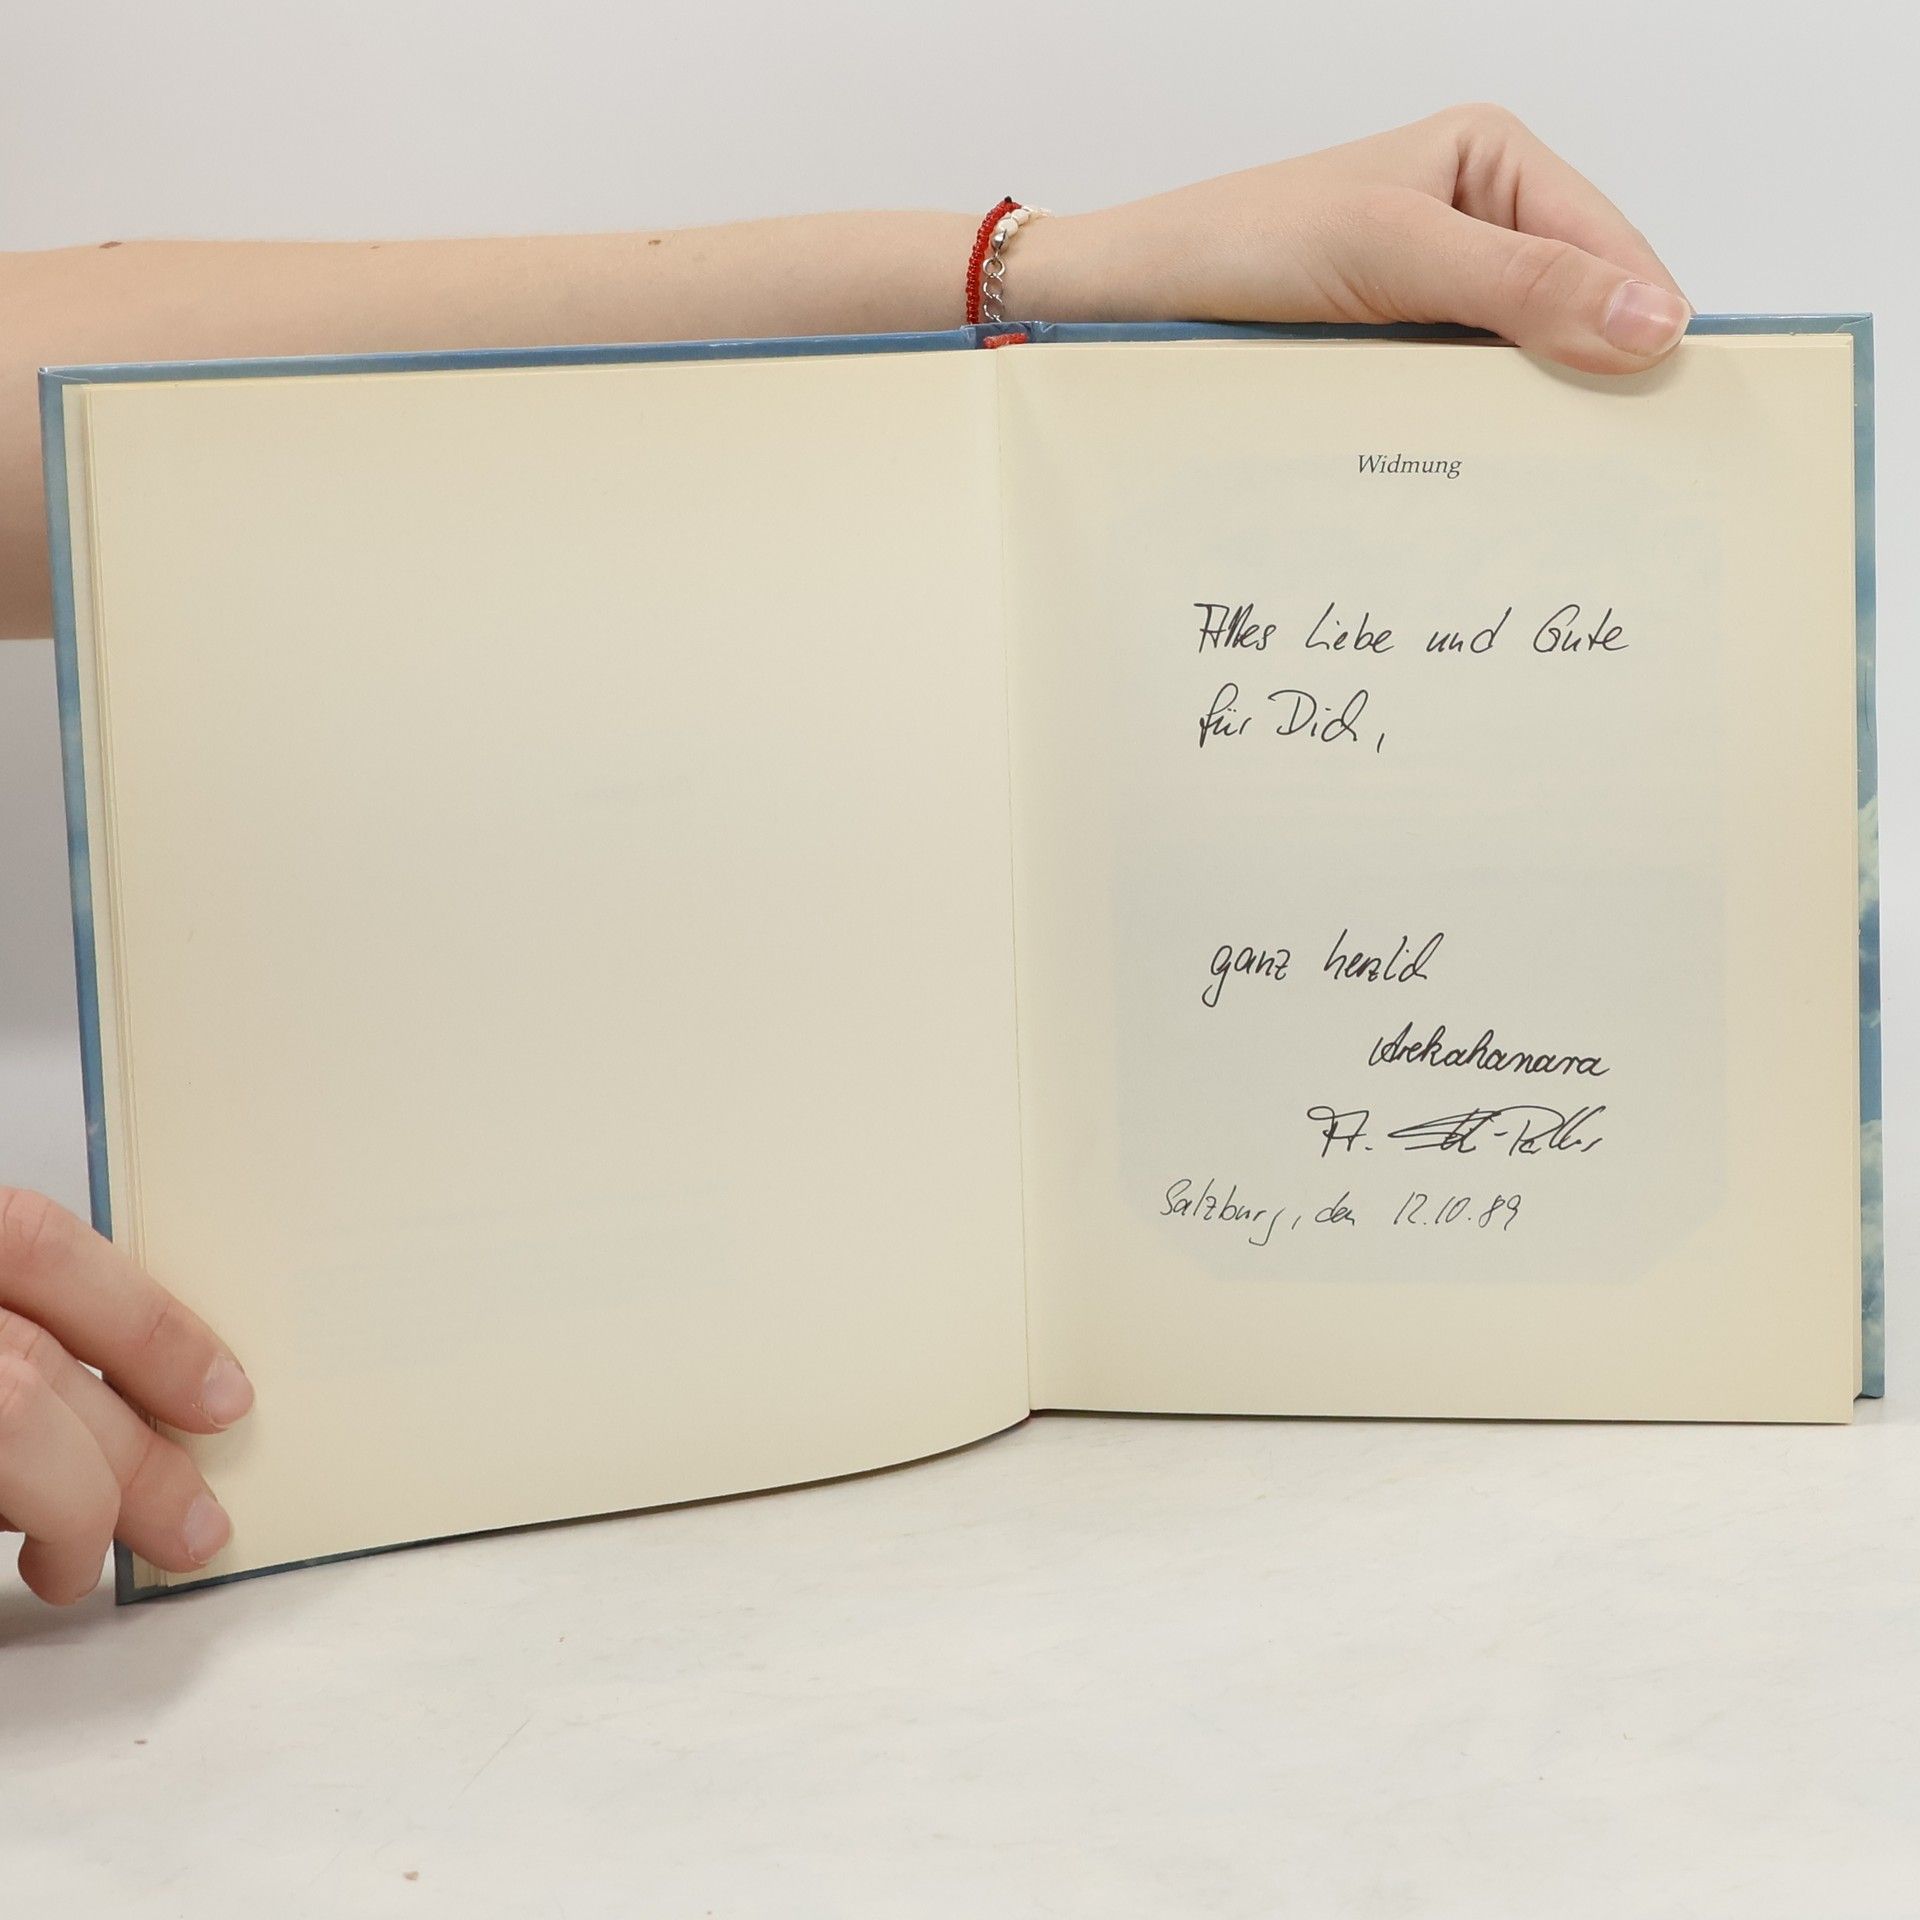 Widmung
Alles Liebe und Gute
für Dich,
ganz herzlich
Arekahanara
A.
Salzburg, den 12.10.89